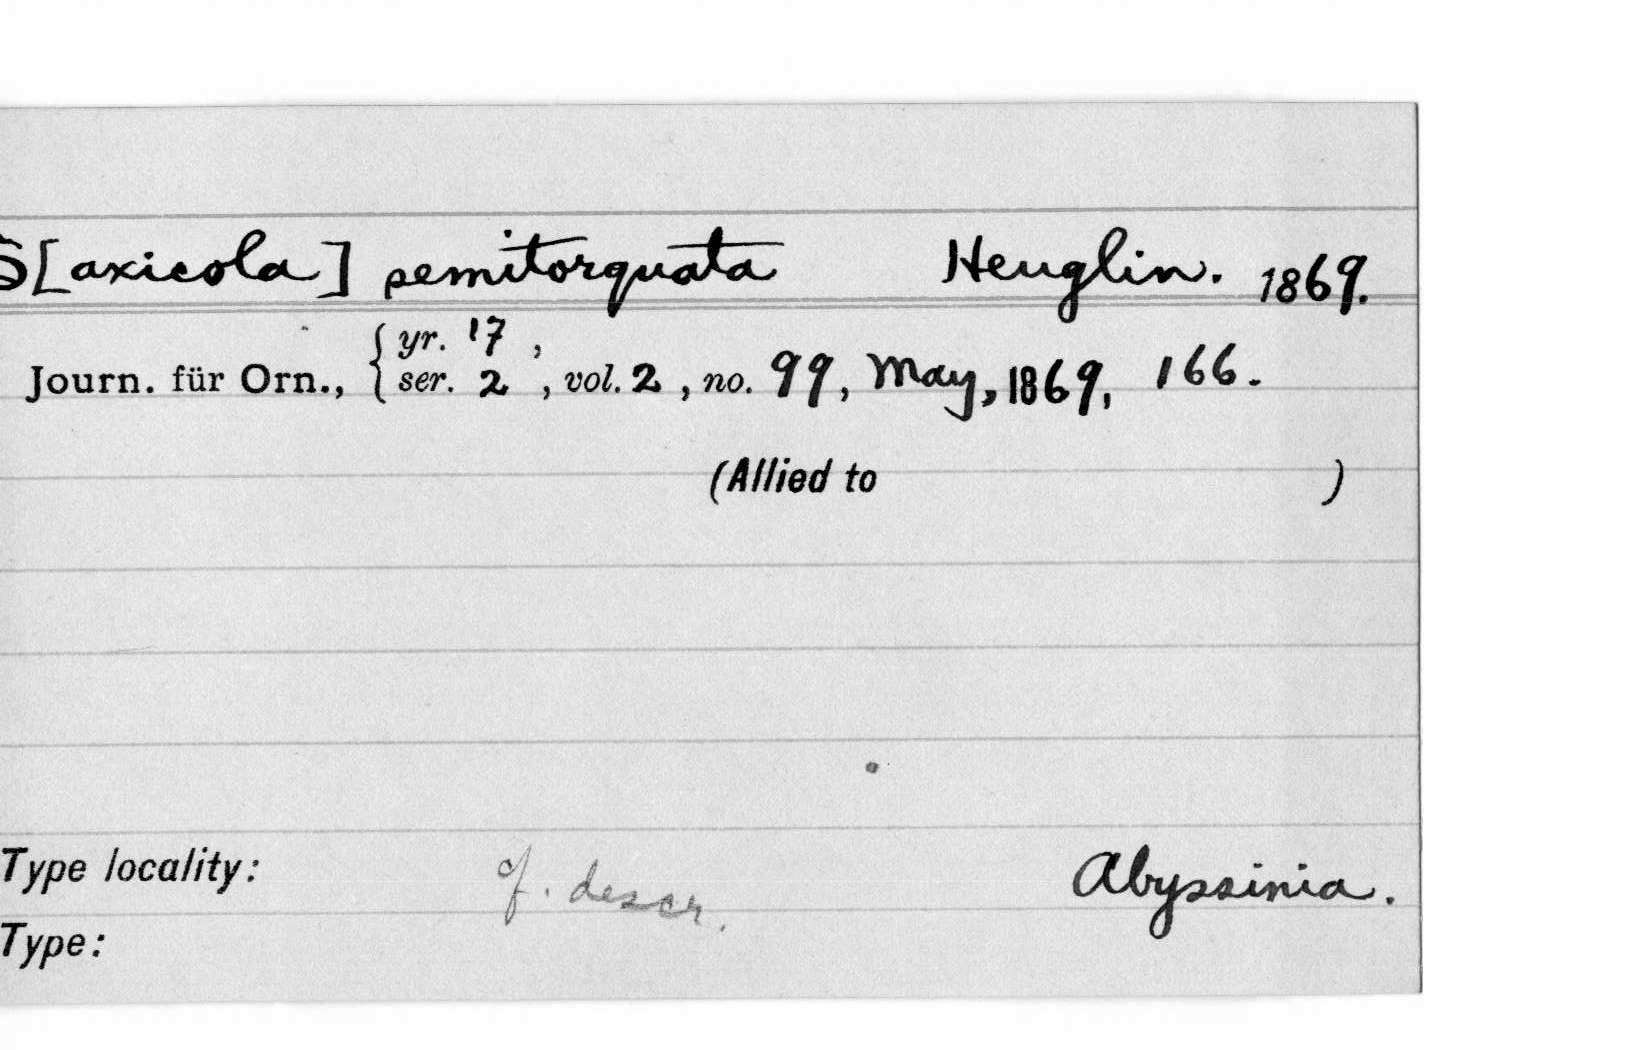 S[axicola] semitorquata Heuglin. 1869.
yr. 17,
Journ. für Orn., ser. 2, vol. 2, no. 99, May, 1869, 166.
(Allied to )
Type locality: cf. descr. Abyssinia.
Type: